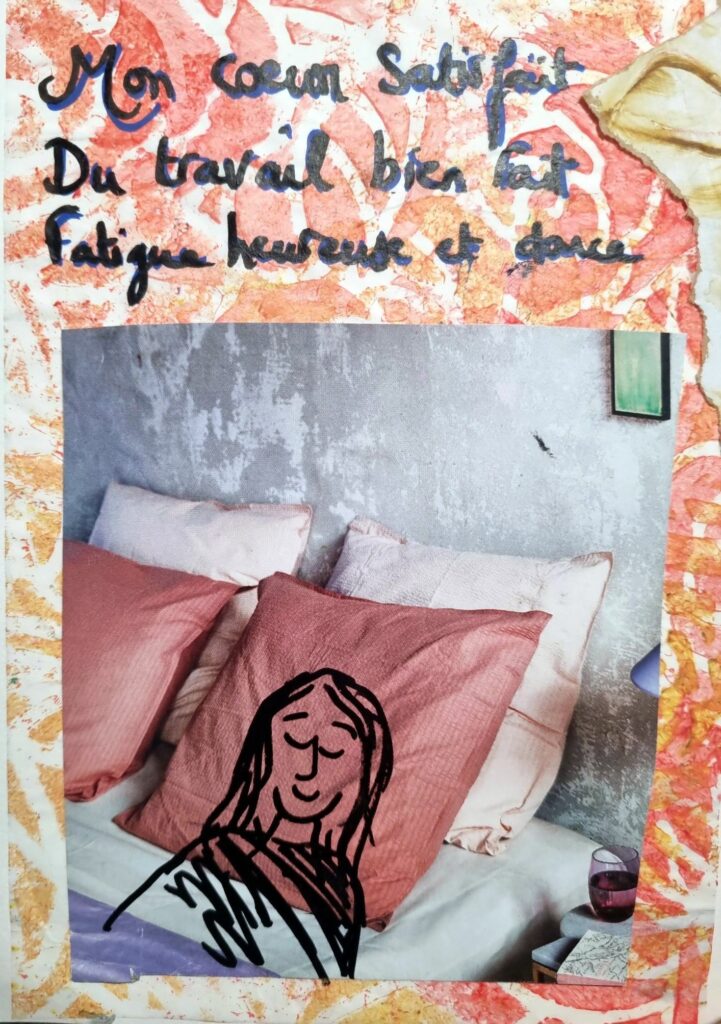 Mon coeur Satisfait
Du travail bien fait
Fatigue heureuse et douce